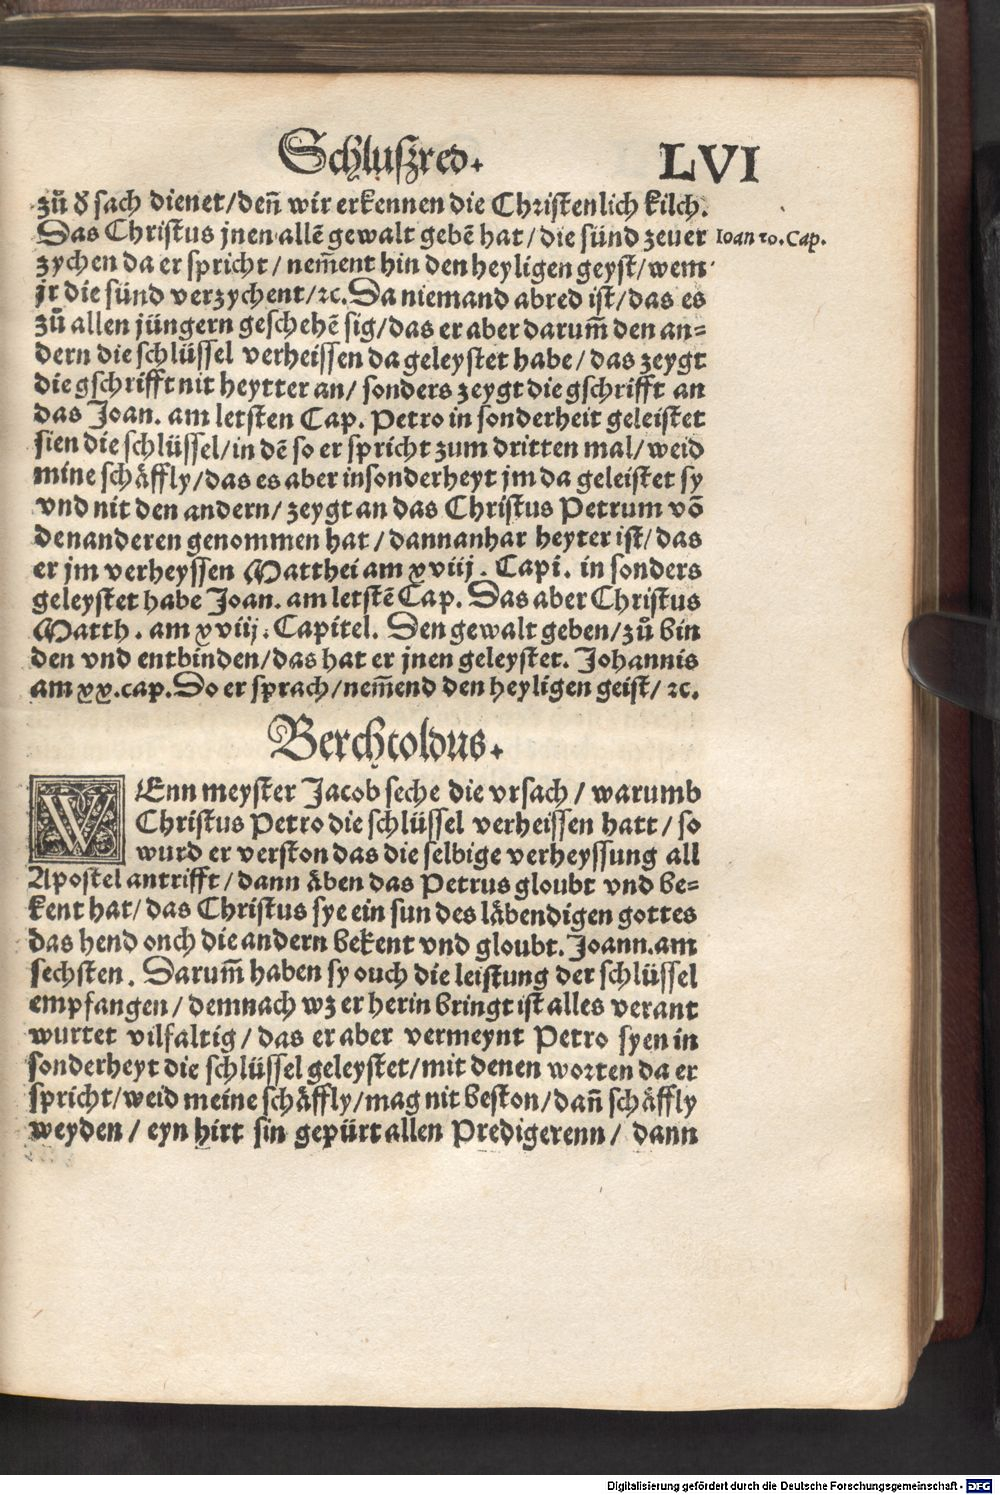 Schluſzred.
LVI
zů d̕ sach dienet/deñ wir erkennen die Christenlich kilch.
Das Christus jnen allē gewalt gebē hat/die sünd zeuer
Ioan 20. Cap.
zychen da er spricht/nem̄ent hin den heyligen geyst/wem
jr die sünd verzychent/ꝛc. Da niemand abred ist/das es
zů allen jüngern geschehē sig/das er aber darum̄ den an=
dern die schlüssel verheissen da geleystet habe/das zeygt
die gschrifft nit heytter an/sonders zeygt die gschrifft an
das Joan. am letsten Cap. Petro in sonderheit geleistet
sien die schlüssel/in dē so er spricht zum dritten mal/weid
mine schäffly/das es aber insonderheyt jm da geleistet sy
vnd nit den andern/zeygt an das Christus Petrum vō
denanderen genommen hat/dannanhar heyter ist/das
er jm verheyssen Matthei am xviij. Capi. in sonders
geleystet habe Joan. am letstē Cap. Das aber Christus
Matth. am xviij. Capitel. Den gewalt geben/zů bin
den vnd entbinden/das hat er jnen geleystet. Johannis
am xx. cap. Do er sprach/nem̄end den heyligen geist/ꝛc.
Berchtoldus.
WEnn meyster Jacob seche die vrsach/warumb
Christus Petro die schlüssel verheissen hatt/so
wurd er verston das die selbige verheyssung all
Apostel antrifft/dann äben das Petrus gloubt vnd be=
kent hat/das Christus sye ein sun des läbendigen gottes
das hend onch die andern bekent vnd gloubt. Joann. am
sechsten. Darum̄ haben sy ouch die leistung der schlüssel
empfangen/demnach wz er herin bringt ist alles verant
wurtet vilfaltig/das er aber vermeynt Petro syen in
sonderheyt die schlüssel geleystet/mit denen worten da er
spricht/weid meine schäffly/mag nit beston/dañ schäffly
weyden/eyn hirt sin gepürt allen Predigerenn/dann
Digitalisierung gefördert durch die Deutsche Forschungsgemeinschaft - DFG